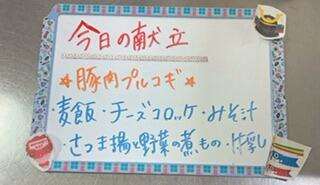 今日の献立
★豚肉プルコギ★
・麦飯・チーズコロッケ・みそ汁
・さつま揚と野菜の煮もの・牛乳